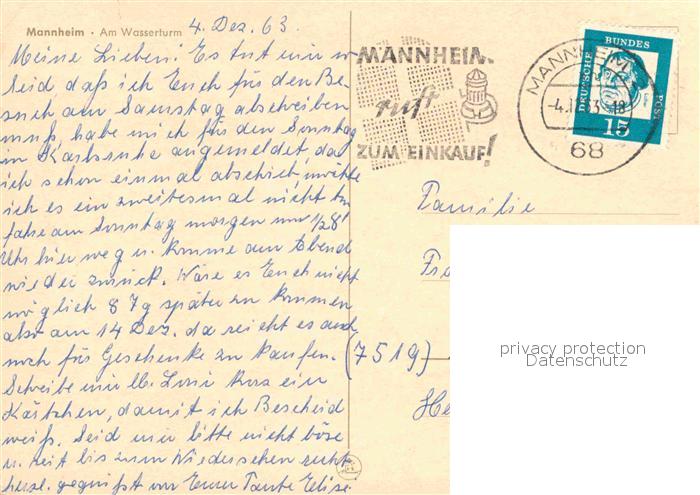 Mannheim · Am Wasserturm 4. Dez. 63.
Meine Lieben! Es tut mir
leid, daß ich Euch für den Be-
such am Samstag abschreiben
muß, habe mich für den Sonntag
in Karlsruhe angemeldet, da
ich schon einmal abschrieb, möchte
ich es ein zweitesmal nicht tun
fahre am Sonntag morgen um 1/2 8
Uhr hier weg u. komme am Abend
wieder zurück. Wäre es Euch nicht
möglich 8 Tg später zu kommen
also am 14 Dez. da reicht es auch
noch für Geschenke zu kaufen.
Schreibe mir lb. Luise kurz ein
Kärtchen, damit ich Bescheid
weiß. Seid mir bitte nicht böse
u. seit bis zum Wiedersehen recht
herzl. gegrüßt von Eurer Tante Elise.
MANNHEIM
ruft
ZUM EINKAUF!
MANNHEIM
-4.12.63.-18
68
DEUTSCHE BUNDESPOST
15
Familie
(7519)
privacy protection
Datenschutz